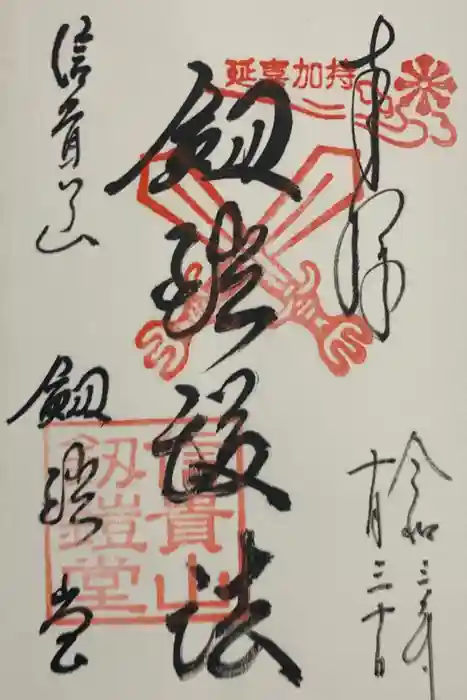 奉拝
令和三年
十月三十日
延喜加持
釼鎧護法
信貴山
釼鎧堂
信貴山
釼鎧堂